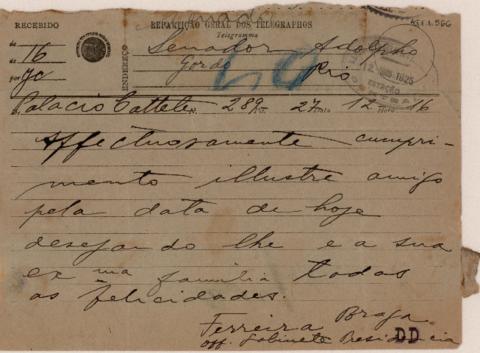 RECEBIDO
REPARTIÇÃO GERAL DOS TELEGRAPHOS
Telegramma
de
às 16
por
ENDEREÇO
Senador Adolpho
Gordo Rio
1925
Palacio Cattete N. 289 27 12 16
Affectuosamente cumpri-
mento illustre amigo
pela data de hoje
desejando lhe e a sua
exma familia todas
as felicidades.
Ferreira Braga
off. Gabinete Presidencia
DD